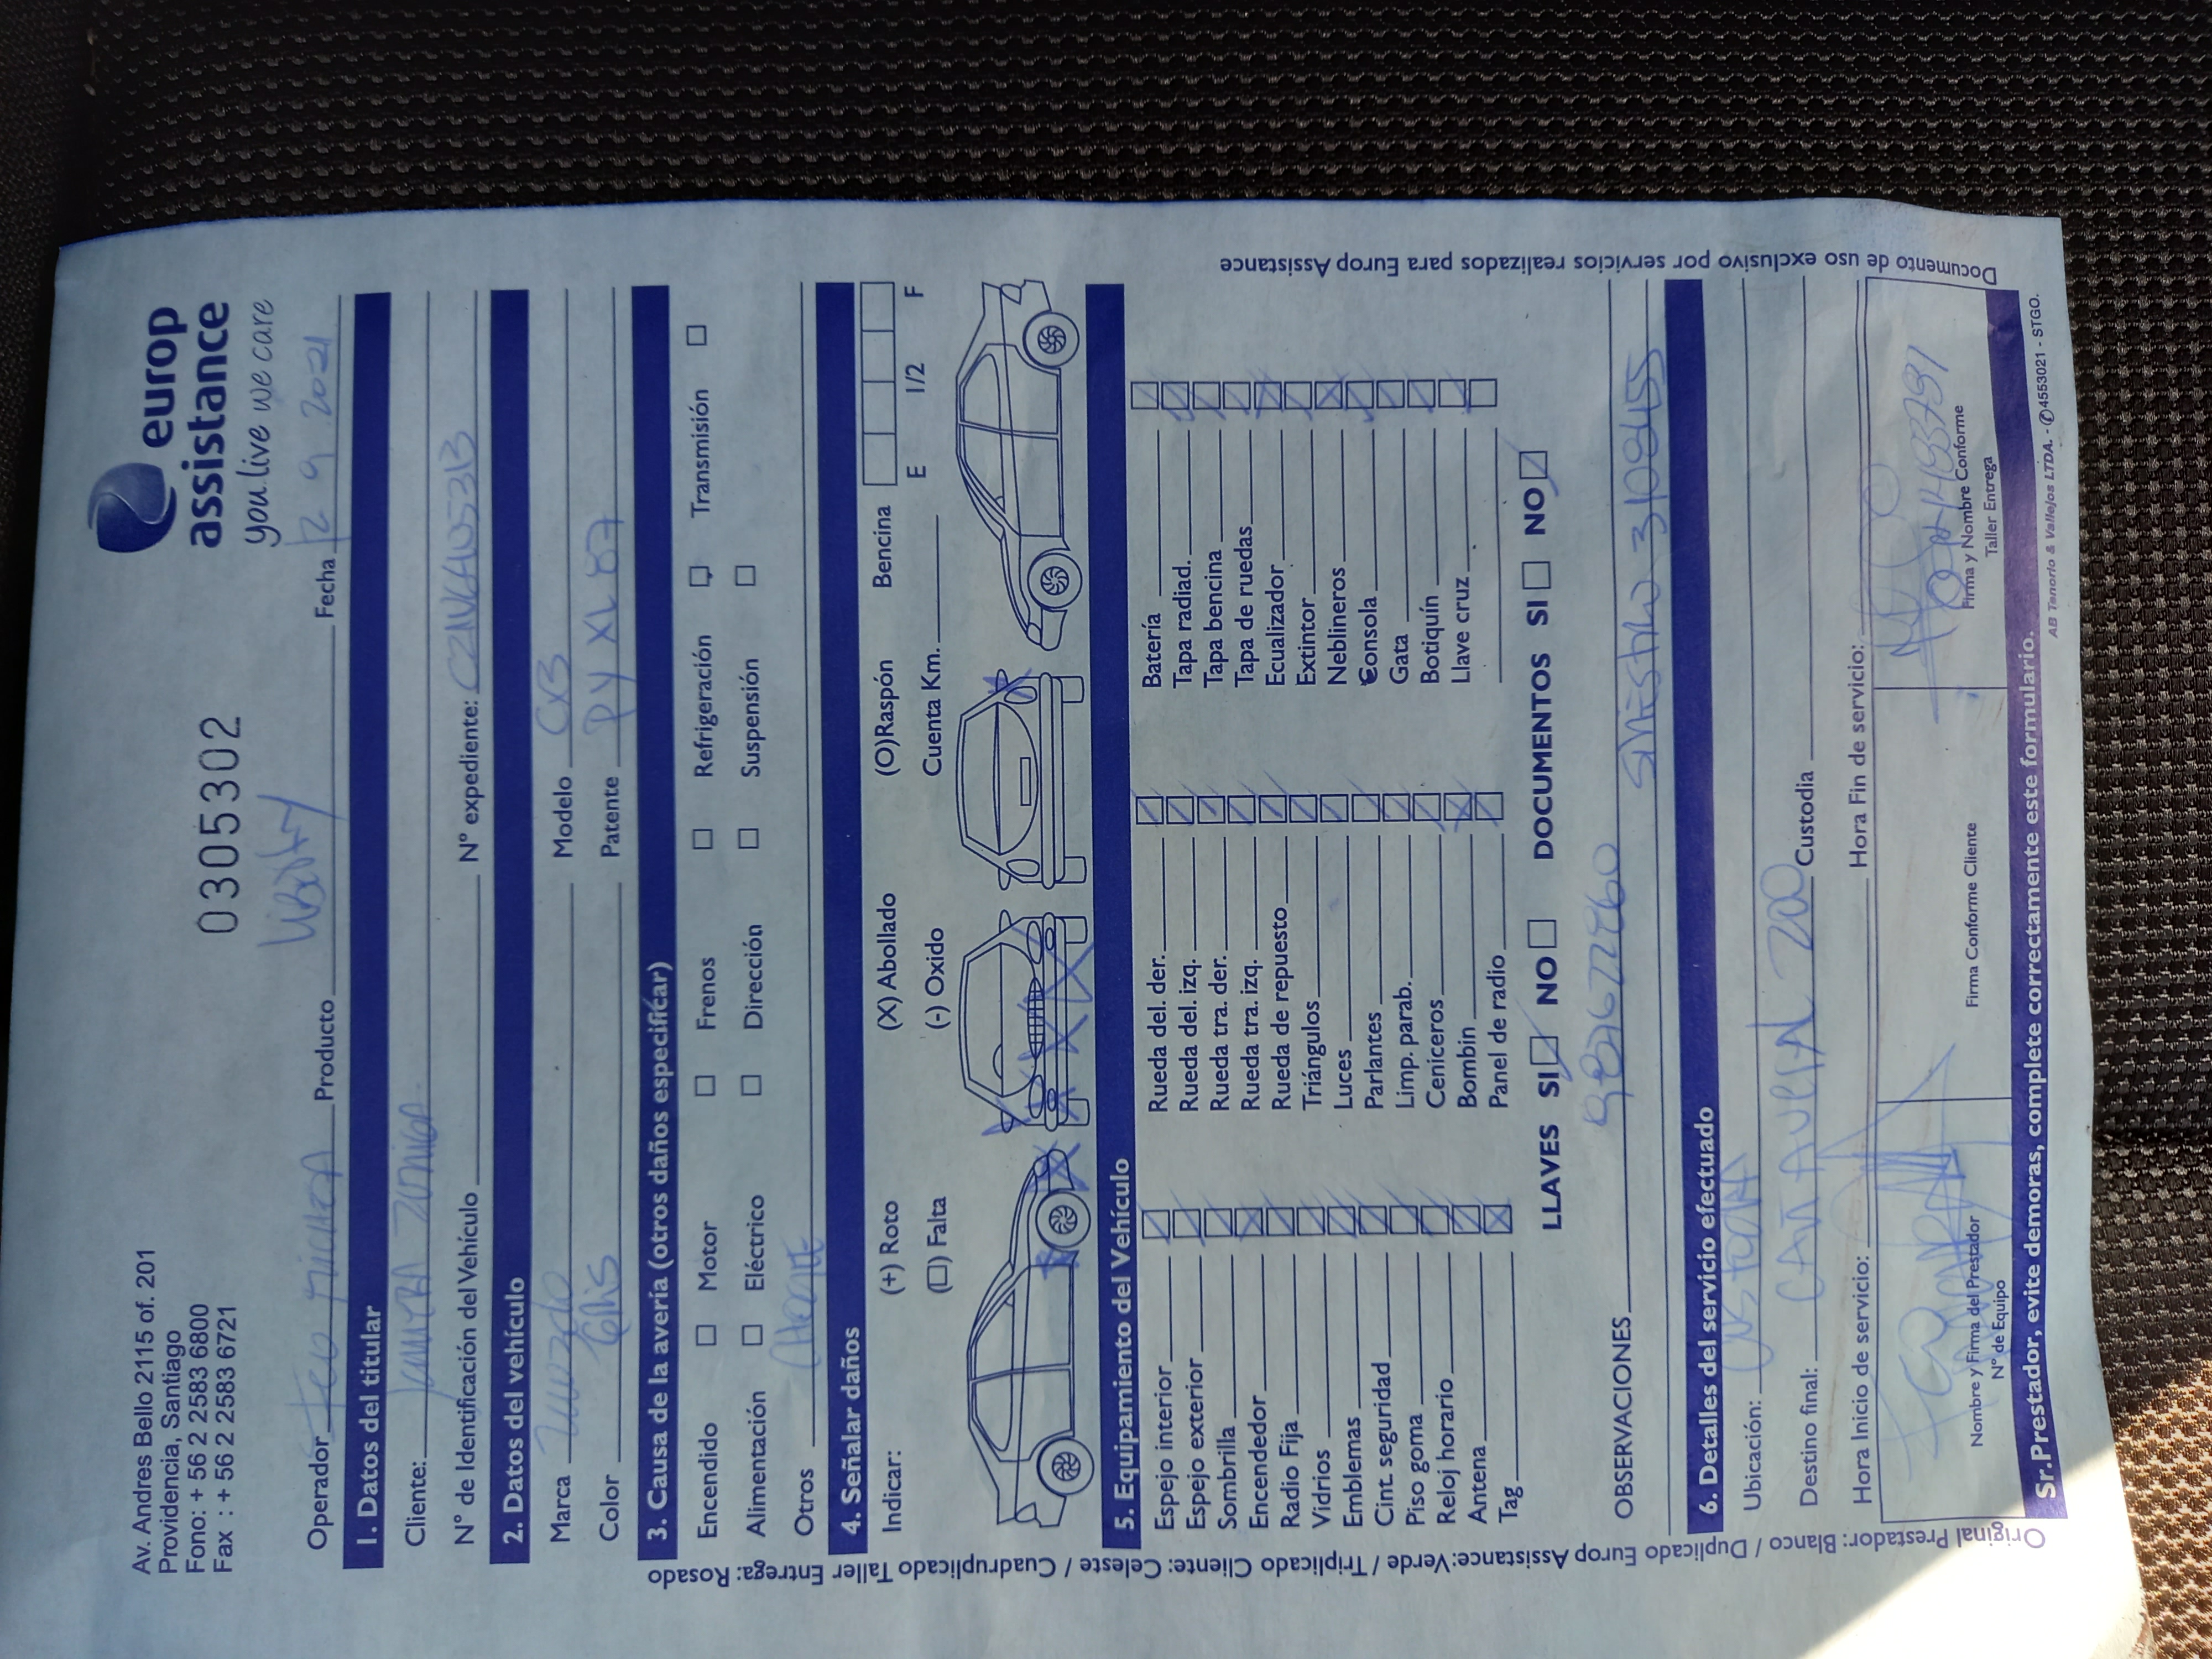 Av. Andres Bello 2115 of. 201
Providencia, Santiago
Fono: + 56 2 2583 6800
Fax : + 56 2 2583 6721
0305302
europ
assistance
you live we care
Operador Producto Liberty Fecha 12 9 2021
1. Datos del titular
Cliente:
N° de Identificación del Vehículo N° expediente:
2. Datos del vehículo
Marca Modelo CX3
Color Gris Patente PYXL87
3. Causa de la avería (otros daños especificar)
Encendido Motor Frenos Refrigeración Transmisión
Alimentación Eléctrico Dirección Suspensión
Otros Choque
4. Señalar daños
Indicar: (+) Roto (X) Abollado (O)Raspón Bencina
(☐) Falta (-) Oxido Cuenta Km. E 1/2 F
5. Equipamiento del Vehículo
Espejo interior Rueda del. der. Batería
Espejo exterior Rueda del. izq. Tapa radiad.
Sombrilla Rueda tra. der. Tapa bencina
Encendedor Rueda tra. izq. Tapa de ruedas
Radio Fija Rueda de repuesto Ecualizador
Vidrios Triángulos Extintor
Emblemas Luces Neblineros
Cint. seguridad Parlantes Consola
Piso goma Limp. parab. Gata
Reloj horario Ceniceros Botiquín
Antena Bombin Llave cruz
Tag Panel de radio
LLAVES SI NO DOCUMENTOS SI NO
OBSERVACIONES
Siniestro 3108455
6. Detalles del servicio efectuado
Ubicación:
Destino final: Cañaveral 200 Custodia
Hora Inicio de servicio: Hora Fin de servicio:
Nombre y Firma del Prestador
N° de Equipo
Firma Conforme Cliente
Firma y Nombre Conforme
Taller Entrega
Sr.Prestador, evite demoras, complete correctamente este formulario.
AB Tenorio & Vallejos LTDA. - ✆4553021 - STGO.
Original Prestador: Blanco / Duplicado Europ Assistance:Verde / Triplicado Cliente: Celeste / Cuadruplicado Taller Entrega: Rosado
Documento de uso exclusivo por servicios realizados para Europ Assistance